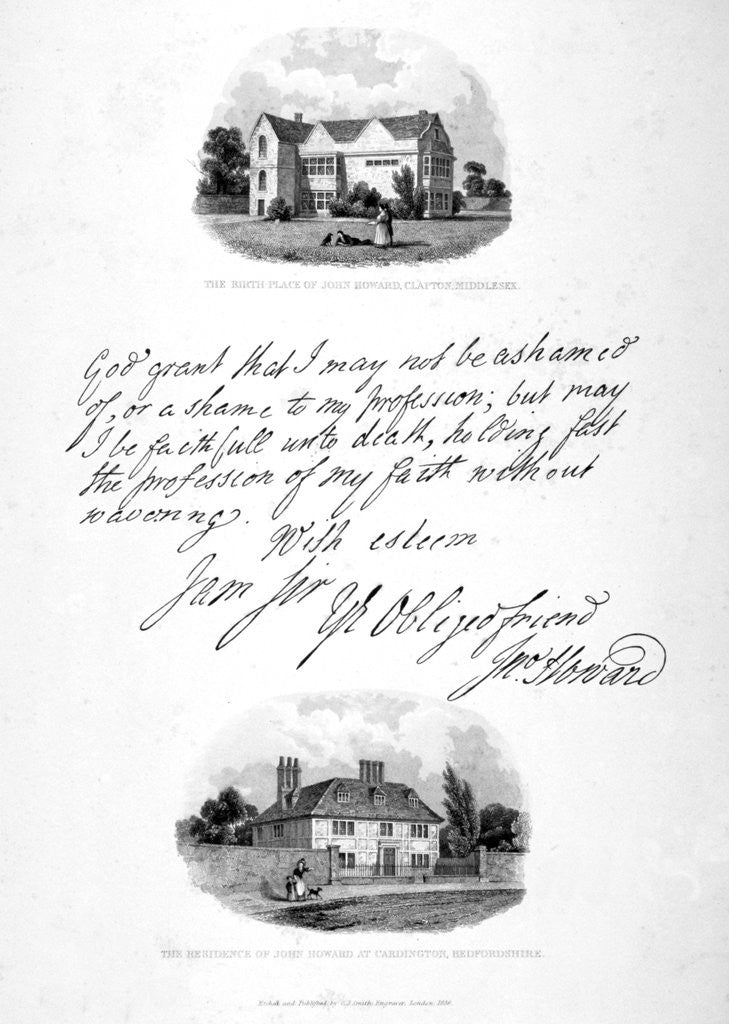 THE BIRTH PLACE OF JOHN HOWARD, CLAPTON, MIDDLESEX.
God grant that I may not be ashamed
of, or a shame to my profession; but may
I be faithfull unto death, holding fast
the profession of my faith without
wavering.
With esteem
I am Sir
Yr Obliged friend
Jno. Howard
THE RESIDENCE OF JOHN HOWARD AT CARDINGTON, BEDFORDSHIRE.
Etched and Published, by C.J. Smith, Engraver, London, 1836.